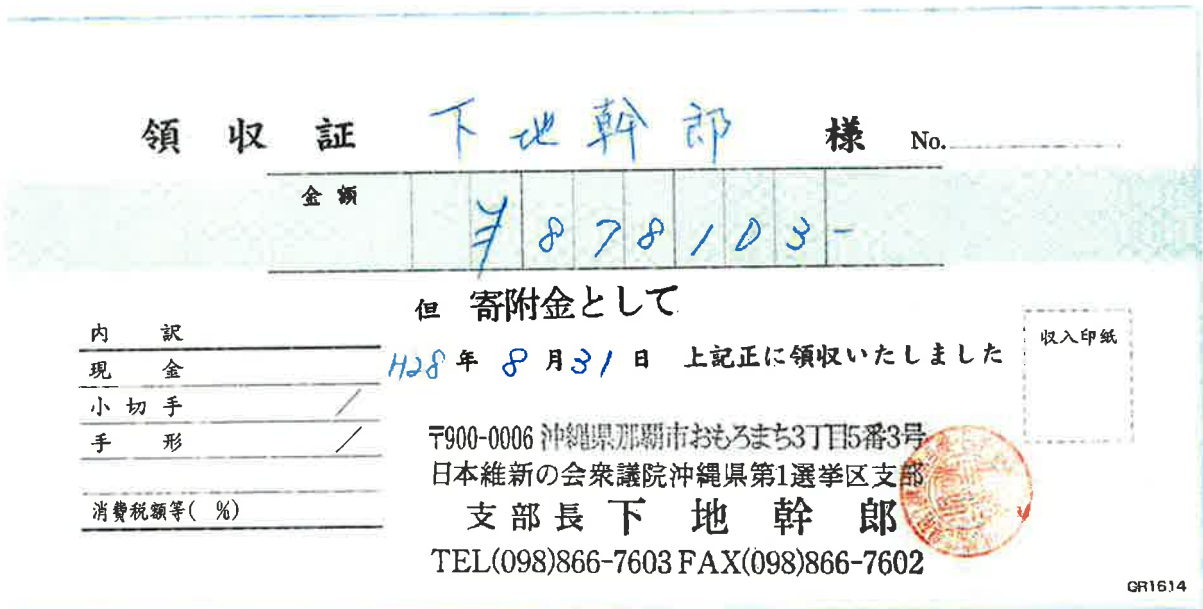 領収証 下地幹郎 様 No.
金額 ¥878103-
但 寄附金として
内訳
現金
小切手 /
手形 /
消費税額等( %)
H28年 8月31日 上記正に領収いたしました
収入印紙
〒900-0006 沖縄県那覇市おもろまち3丁目5番3号
日本維新の会衆議院沖縄県第1選挙区支部
支部長 下地幹郎
TEL(098)866-7603 FAX(098)866-7602
GR1614